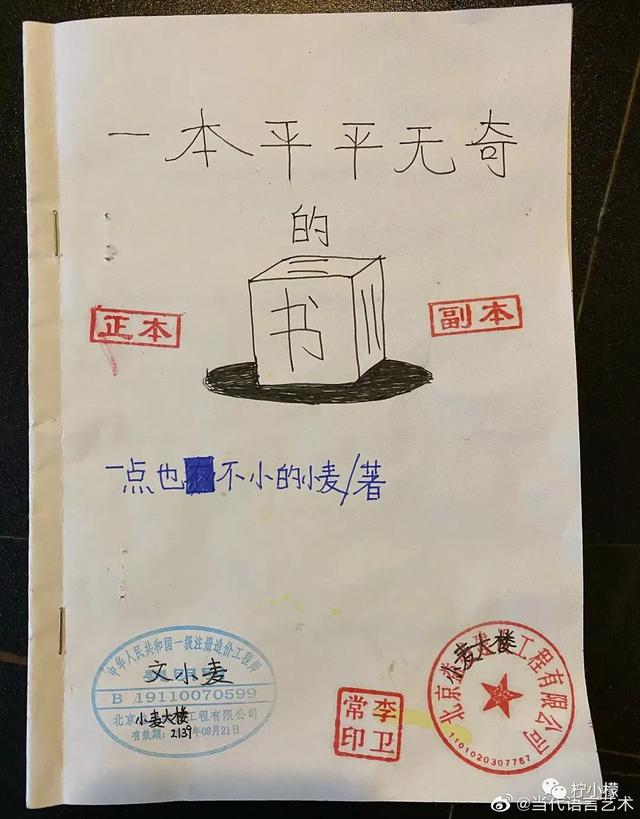 一本平平无奇
的
书
正本
副本
一点也不小的小麦/著
中华人民共和国一级注册造价工程师
文小麦
B 19110070599
北京小麦大楼工程有限公司
有效期：2139年08月21日
李卫
常印
北京小麦大楼工程有限公司
1101020307787
柠小檬
@当代语言艺术